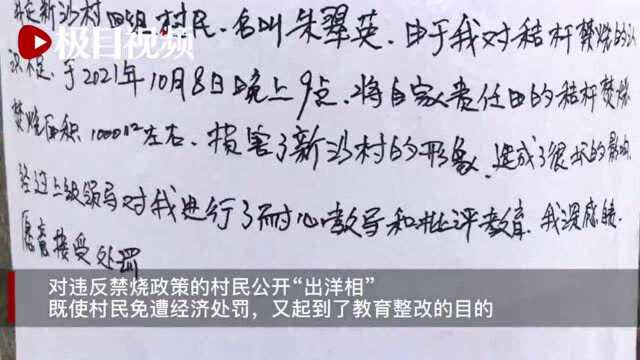 我是新沙村四组村民，名叫朱翠英，由于我对秸杆焚烧的认
识不足，于2021年10月8日晚上9点，将自家责任田的秸杆焚烧
焚烧面积1000m²左右，损害了新沙村的形象，造成了很坏的影响
经过上级领导对我进行了耐心教导和批评教育，我深感
愿意接受处罚
极目视频
对违反禁烧政策的村民公开“出洋相”
既使村民免遭经济处罚，又起到了教育整改的目的